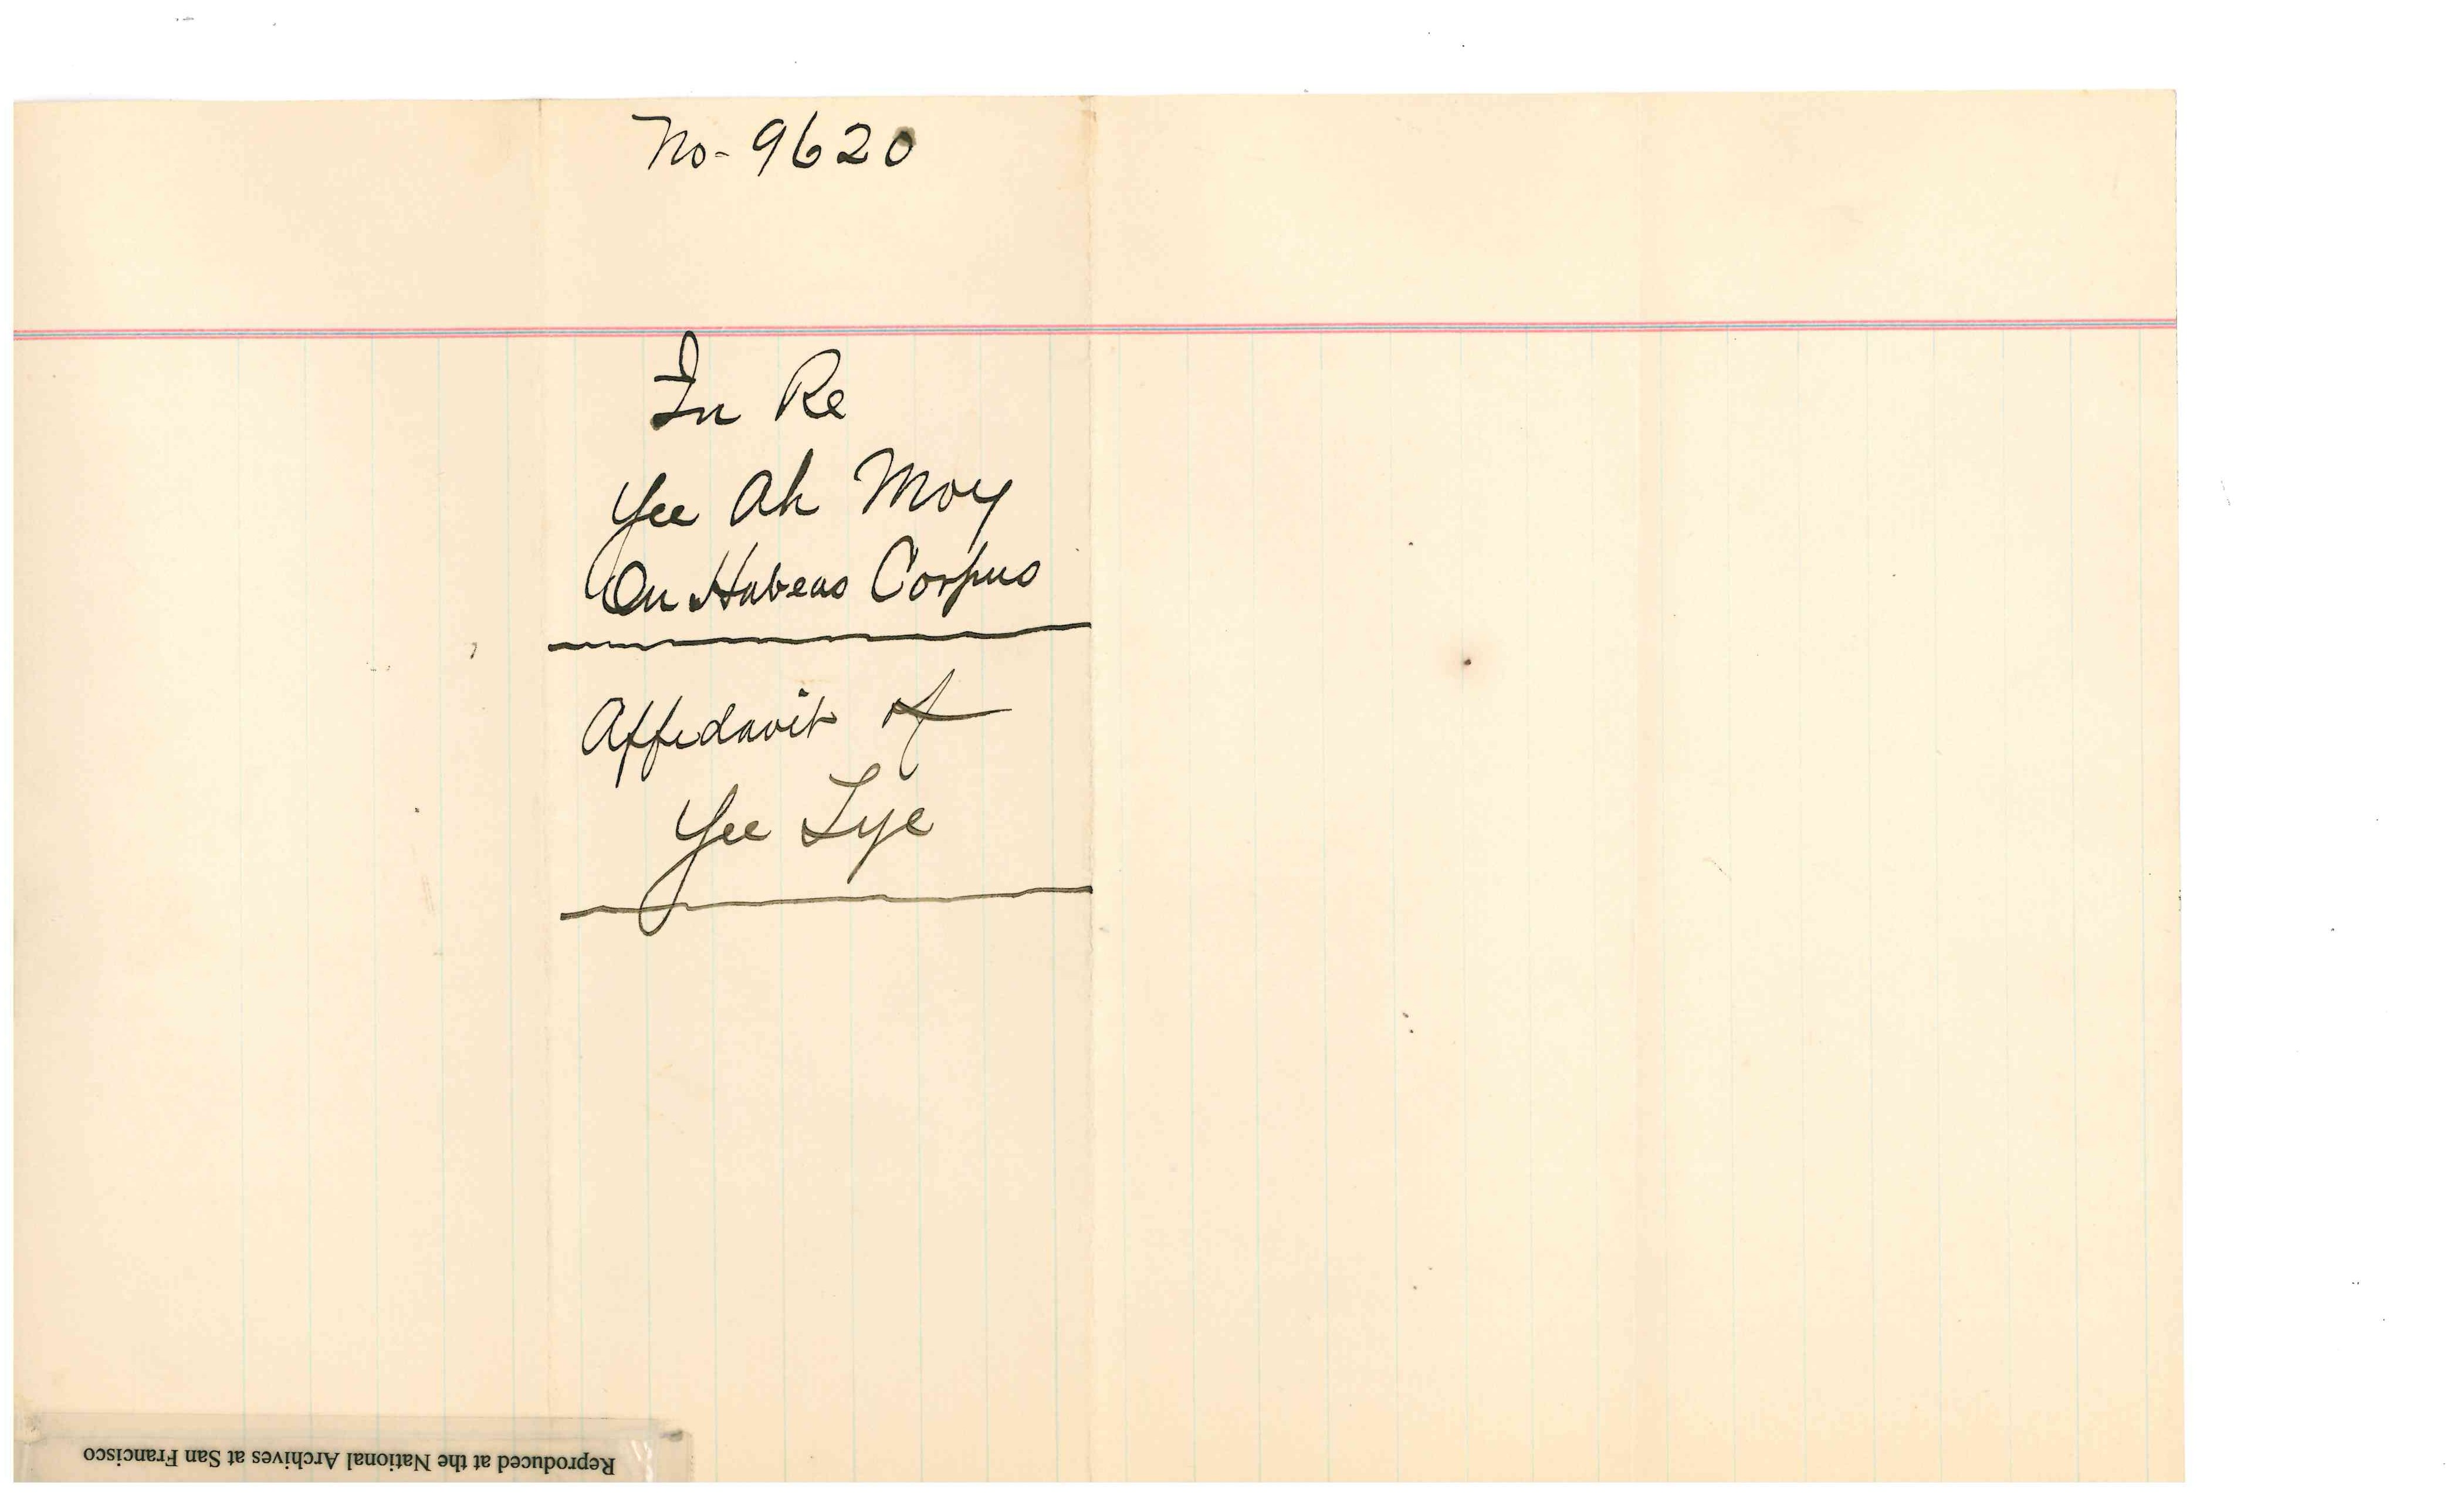 No- 9620
In Re
Yee Ah Moy
On Habeas Corpus
Affidavit of
Yee Lye
Reproduced at the National Archives at San Francisco